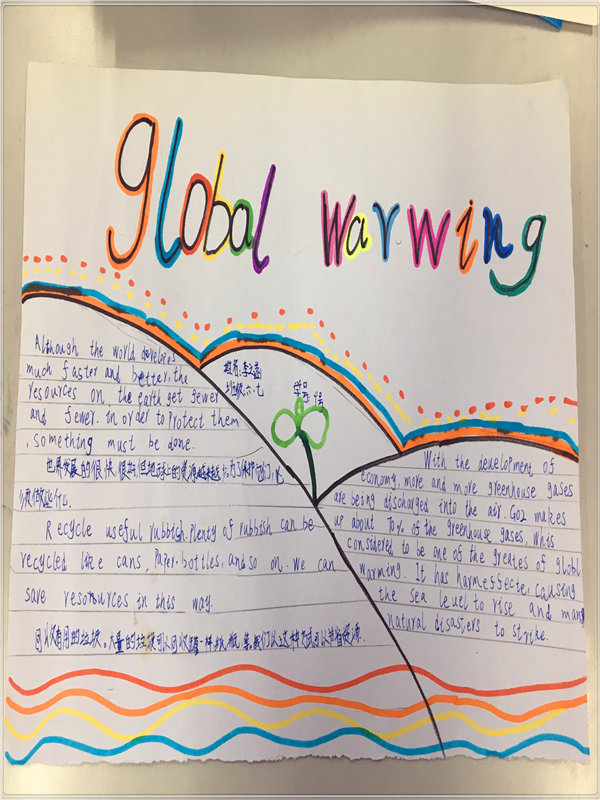 global Warwing
Although the world develores
much faster and better, the
resources on the earth get fewer
and fewer. in order to protect them
, something must be done.
世界发展的很快 很好 但
Recycle useful rubbigh. plenty of rubbish can be
recycled like cans, Paper, bottles, and so on. We can
save resources in this way.
可以 有用的垃圾。大量的垃圾可以回收
班级：六、七
学号
With the development of
economy, more and more greenhouse gases
are being discharged into the air. Go2 makes
up about 70% of the greenhouse gases. Whis
considered to be one of the greates of globl
warming. It has harmeffecte, causing
the sea leuel to rise and many
natural disasters to strike.